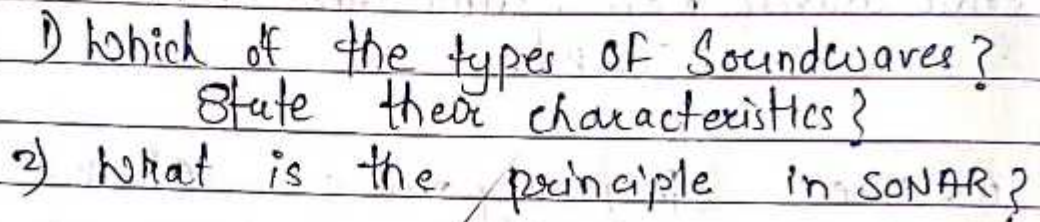 1) Which of the types of Soundwaves?
State their characteristics?
2) What is the principle in SONAR?